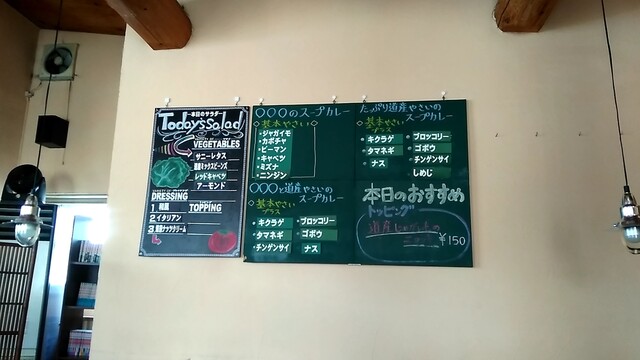 本日のサラダー
Today's Salad
VEGETABLES
サニーレタス
レッドキャベツ
アーモンド
DRESSING
1 和風
TOPPING
2 イタリアン
3
〇〇〇のスープカレー
◇基本やさい◇
・ジャガイモ
・カボチャ
・ピーマン
・キャベツ
・ミズナ
・ニンジン
〇〇〇と道産やさいの
スープカレー
◇基本やさい
プラス
・キクラゲ
・ブロッコリー
・タマネギ
・ゴボウ
・チンゲンサイ
・ナス
たっぷり道産やさいの
スープカレー
◇基本やさい
プラス
・キクラゲ
・ブロッコリー
・タマネギ
・ゴボウ
・ナス
・チンゲンサイ
・しめじ
本日のおすすめ
トッピング
¥150